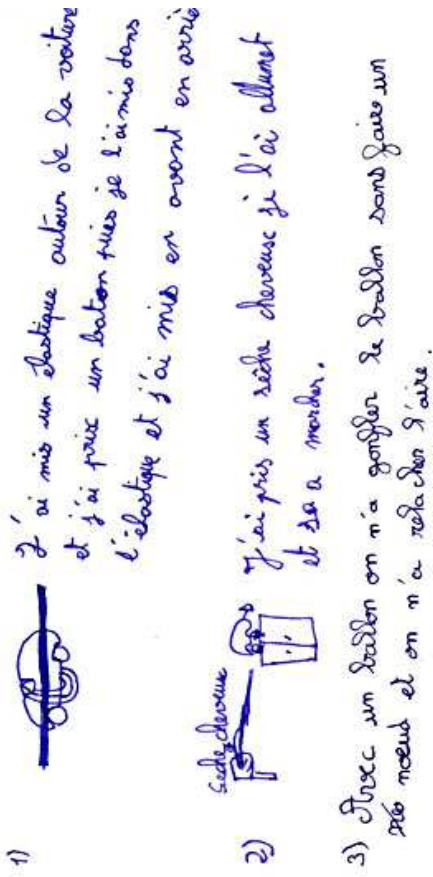 1) J'ai mis un elastique autour de la voiture
et j'ai prix un baton puies je l'ai mis dans
l'elastique et j'ai mis en avant en arriè
2) Sèche cheveux
J'ai pris un sèche cheveux je l'ai allumet
et sa a marcher.
3) Avec un ballon on n'a gonfler le ballon sans faire un
noeud et on n'a relacher l'aire.